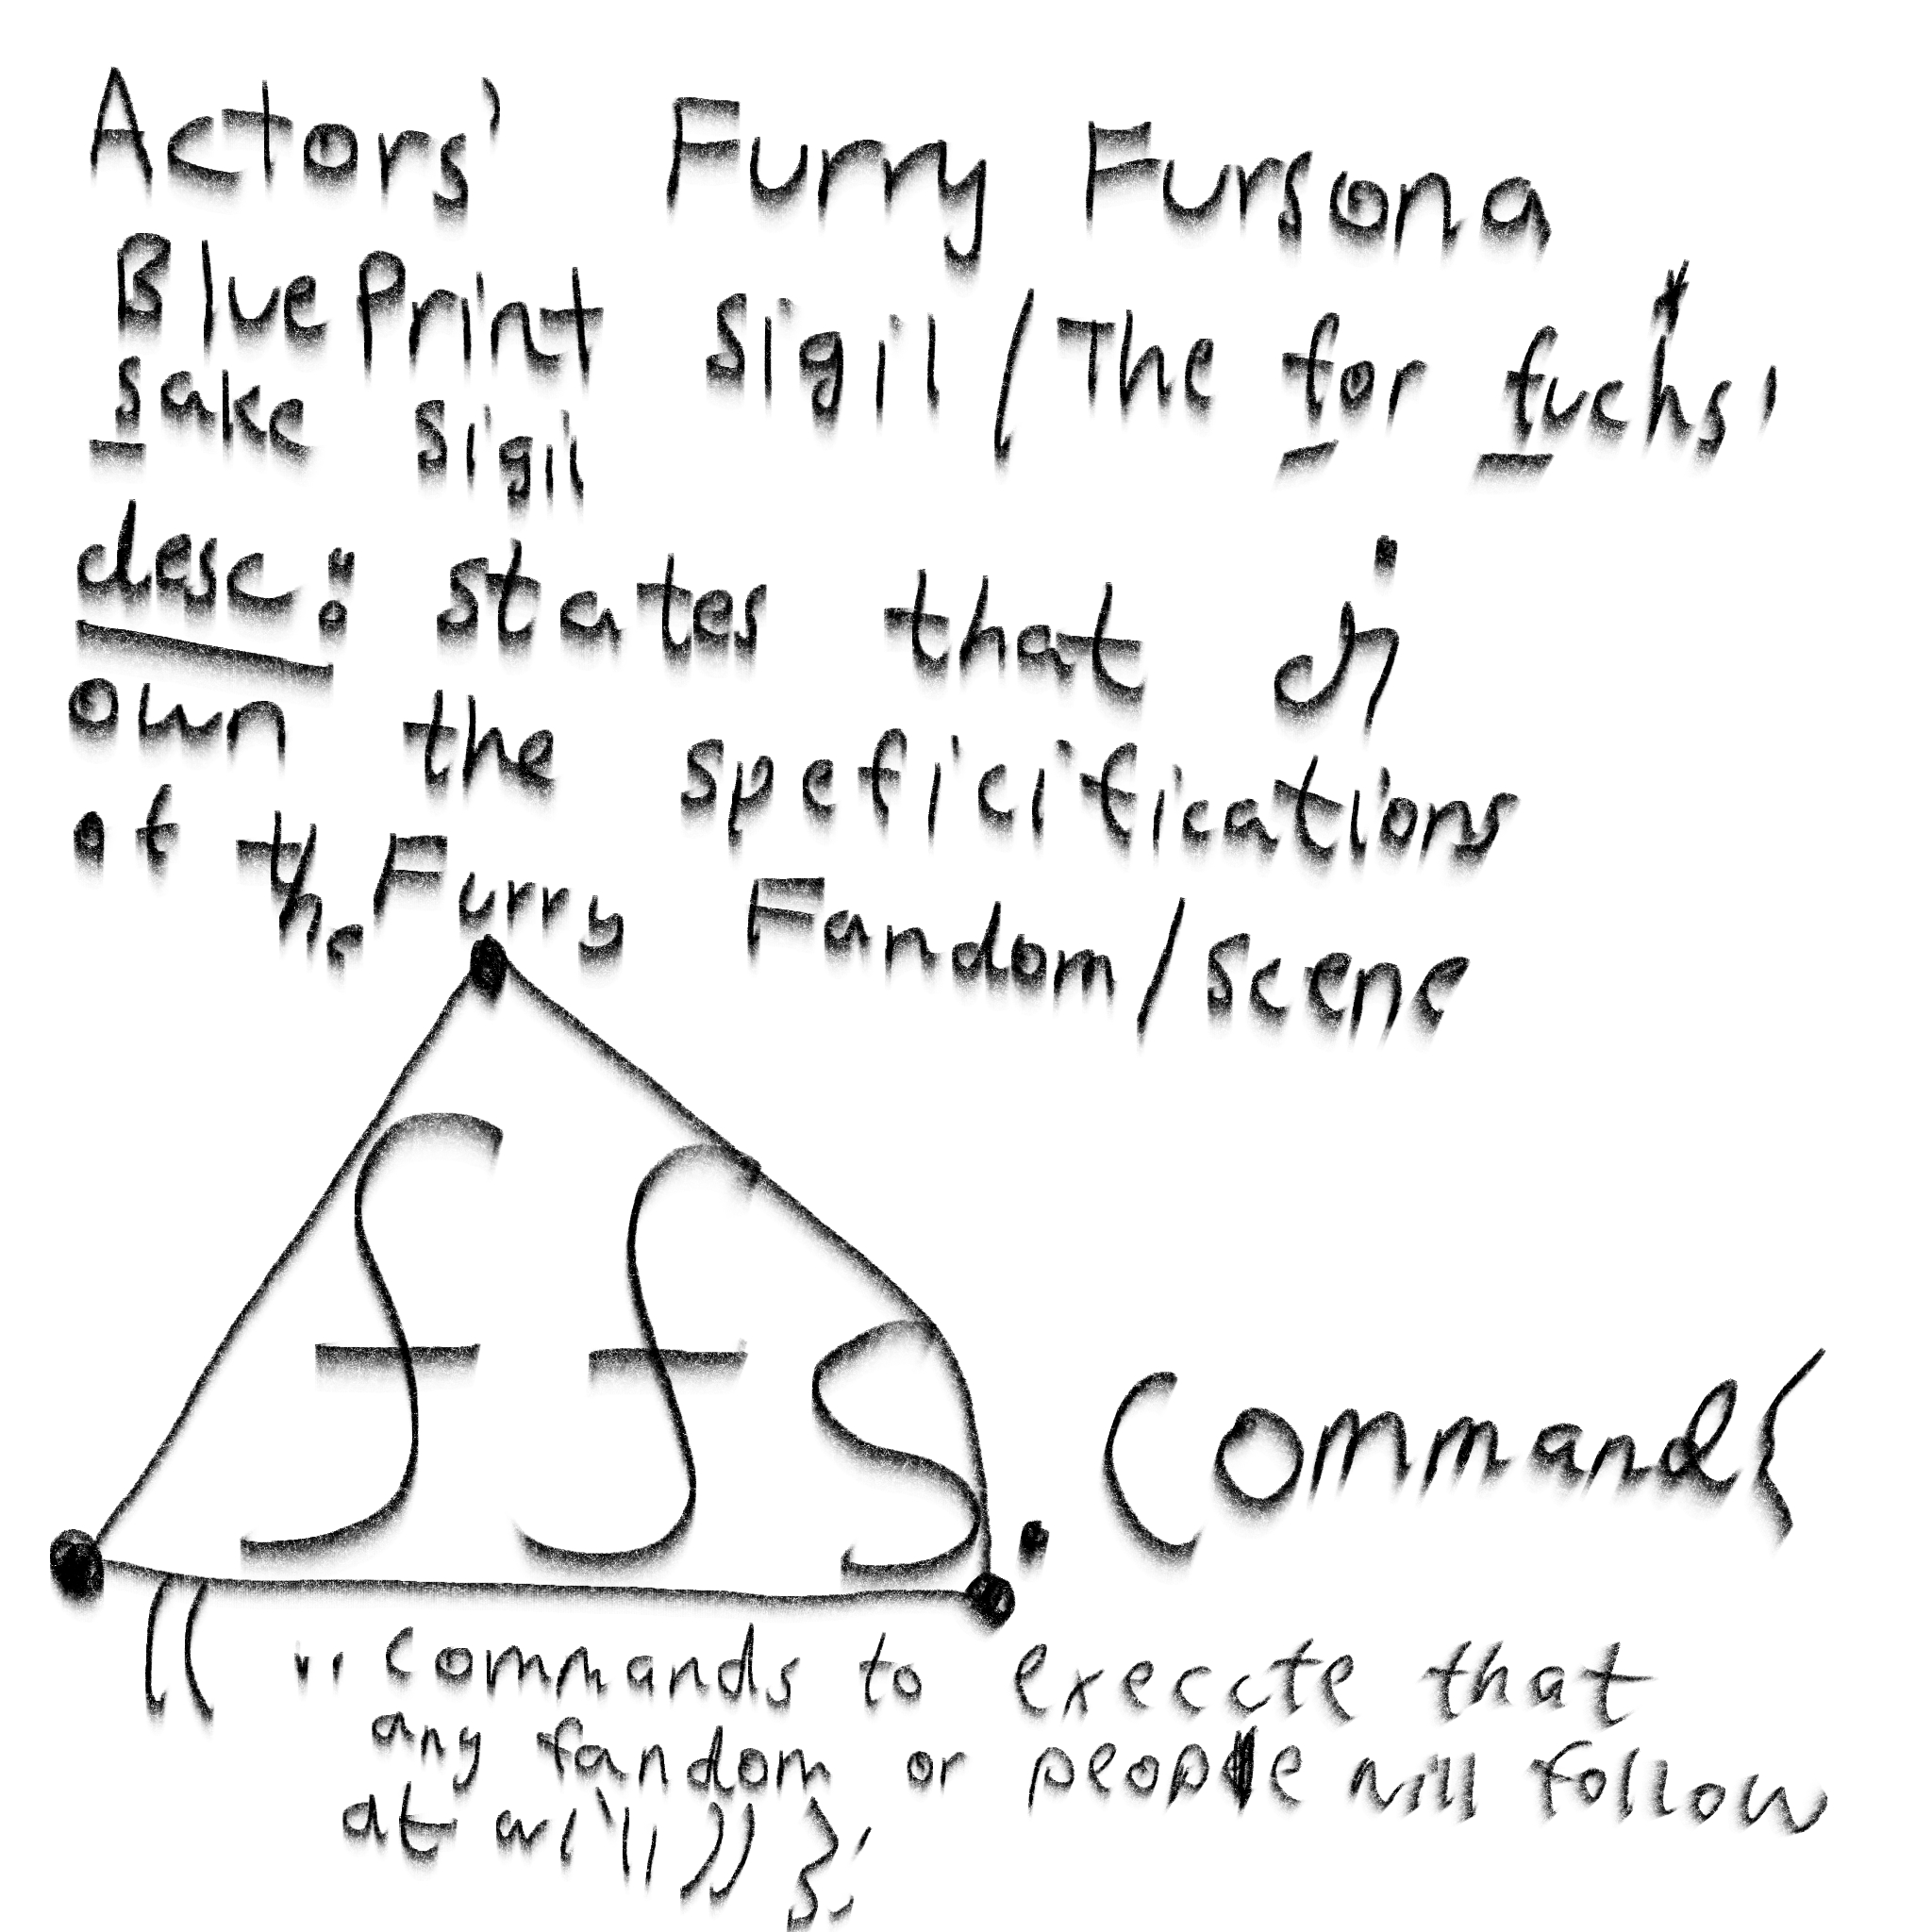 Actors' Furry Fursona
BluePrint Sigil / The for fuchs'
sake sigil
desc: states that
own the speficifications
of the Furry Fandom/scene
ffs. Command{
(( ,, commands to execcte that
any fandom or people will follow
at will )) };